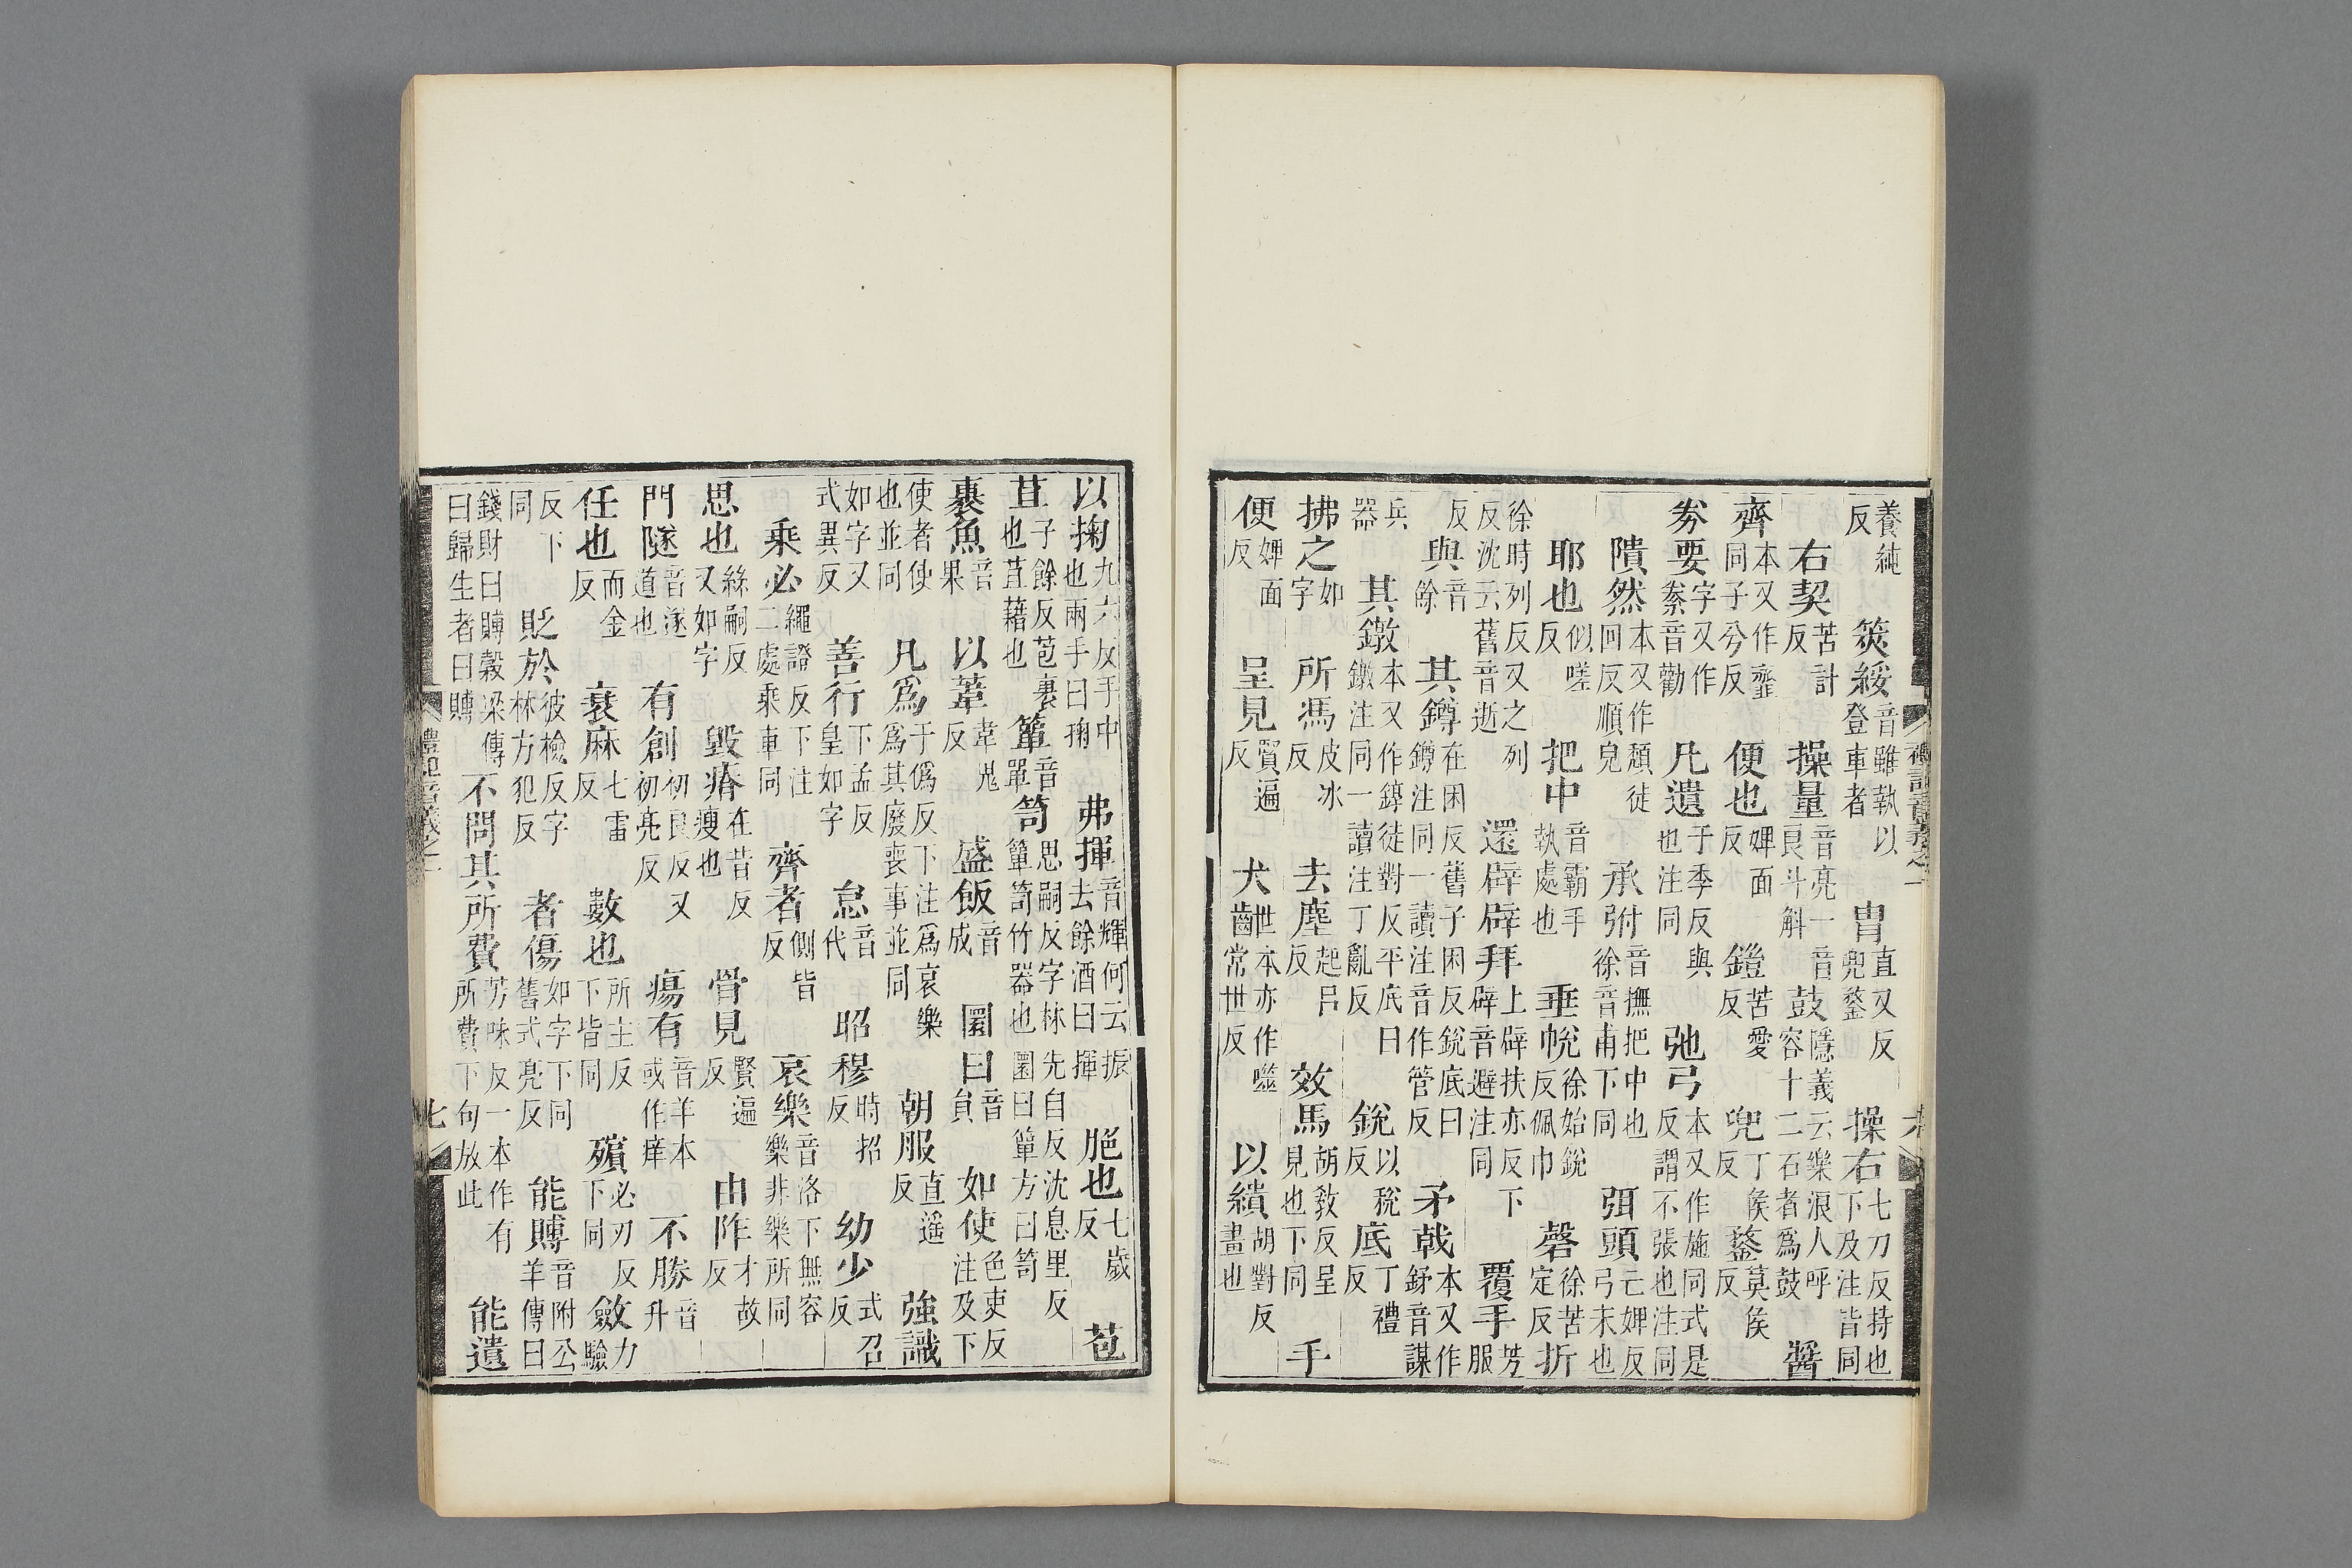 養純反 筴綏音雖執以登車者 冑直又反兜鍪 操右七刀反持也下及注皆同
右契苦計反 操量音亮一音良斗斛 鼓隱義云樂浪人呼容十二石者爲鼓 醬
齊本又作齏同子兮反 便也婢面反 鎧苦愛反 兜丁侯反 鍪莫侯反
劵要字又作絭音勸 凡遺于季反與也注同 弛弓本又作施同式是反謂不張也注同
隤然本又作頹徒回反順皃 承弣音撫把中也徐音甫下同 弭頭亡婢反弓末也
耶也似嗟反 把中音霸手執處也 垂帨徐始銳反佩巾 磬徐苦定反 折
徐時列反又之列反沈云舊音逝 還辟辟拜上辟扶亦反下辟音避注同 覆手芳服
反 與音餘 其鐏在困反舊子困反銳底曰鐏注同一讀注音作管反 矛戟本又作鉹音謀
兵器 其鐓本又作錞徒對反平底曰鐓注同一讀注丁亂反 銳以稅反 底丁禮反
拂之如字 所馮皮冰反 去塵起呂反 效馬胡敎反呈見也下同 手
便婢面反 呈見賢遍反 犬齒世本亦作噬常世反 以繢胡對反畫也
禮記音義之一
以掬九六反手中也兩手曰掬 弗揮音輝何云振去餘酒曰揮 脃也七歲反 苞
苴子餘反苞裹也苴藉也 簞音單 笥思嗣反字林先自反沈息里反簞笥竹器也圜曰簞方曰笥
裹魚音果 以葦韋鬼反 盛飯音成 圜曰音負 如使色吏反注及下
使者使也並同 凡爲于僞反下注爲哀樂爲其廢喪事並同 朝服直遥反 強識
如字又式異反 善行下孟反皇如字 怠音代 昭穆時招反 幼少式召反
乘必繩證反下注二處乘車同 齊者側皆反 哀樂音洛下無容樂非樂所同
思也絲嗣反又如字 毀瘠在昔反瘦也 骨見賢遍反 由阼才故反
門隧音遂道也 有創初良反又初亮反 瘍有音羊本或作痒 不勝音升
任也而金反 衰麻七雷反 數也所主反下皆同 殯必刃反下同 斂力驗
反下同 貶於彼檢反字林方犯反 者傷如字下同舊式亮反 能賻音附公羊傳曰
錢財曰賻穀梁傳曰歸生者曰賻 不問其所費芳味反一本作有所費下句放此 能遺
七